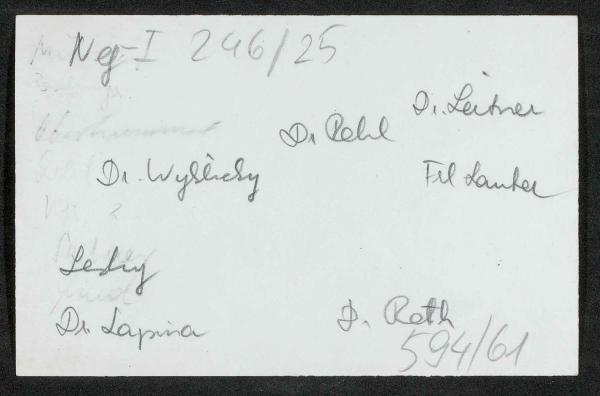 Neg-I 246/25
Dr. Leitner
Dr Rehl
Dr. Wyklicky
Frl Lanker
Lesky
Dr. Lapina
D. Roth
594/61